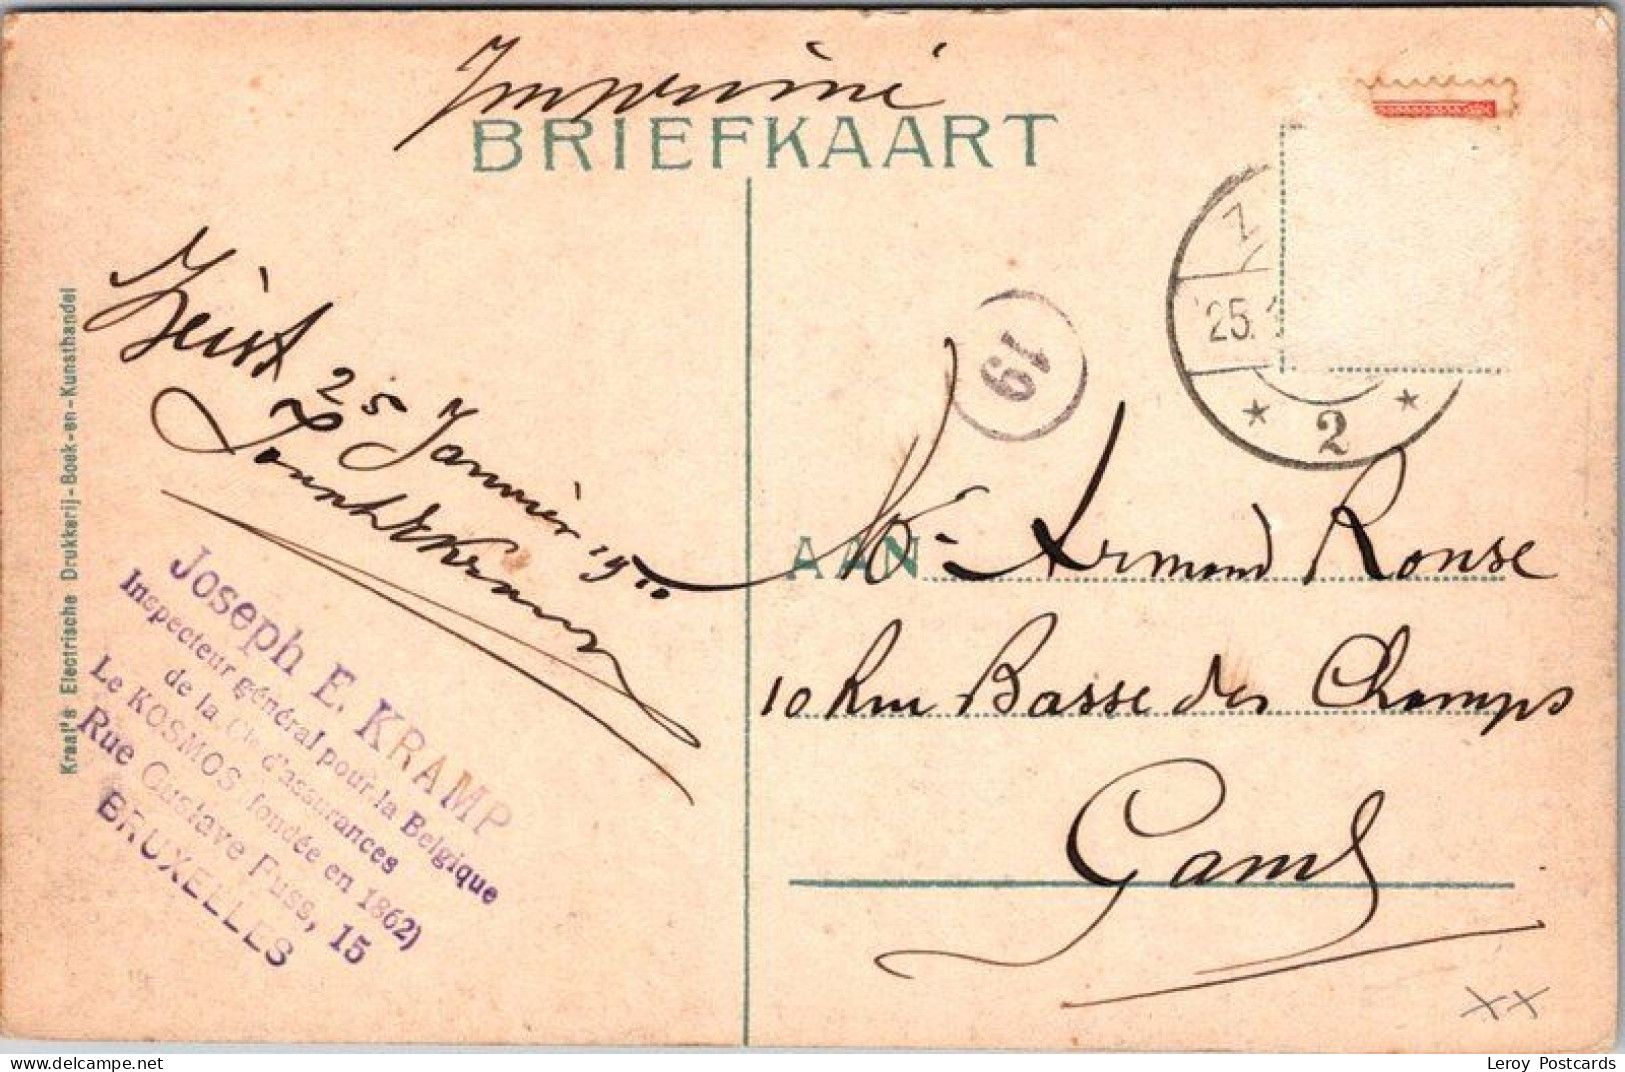 Imprimé
BRIEFKAART
Zeist 25 Janvier
Joseph E. KRAMP
Inspecteur général pour la Belgique
de la Cie d'assurances
Le KOSMOS (fondée en 1862)
Rue Gustave Fuss, 15
BRUXELLES
Kraal's Electrische Drukkerij-Boek-en-Kunsthandel
19
Z
25.1
2
AAN
Mr Armand Ronse
10 Rue Basse des Champs
Gand
XX
Leroy Postcards